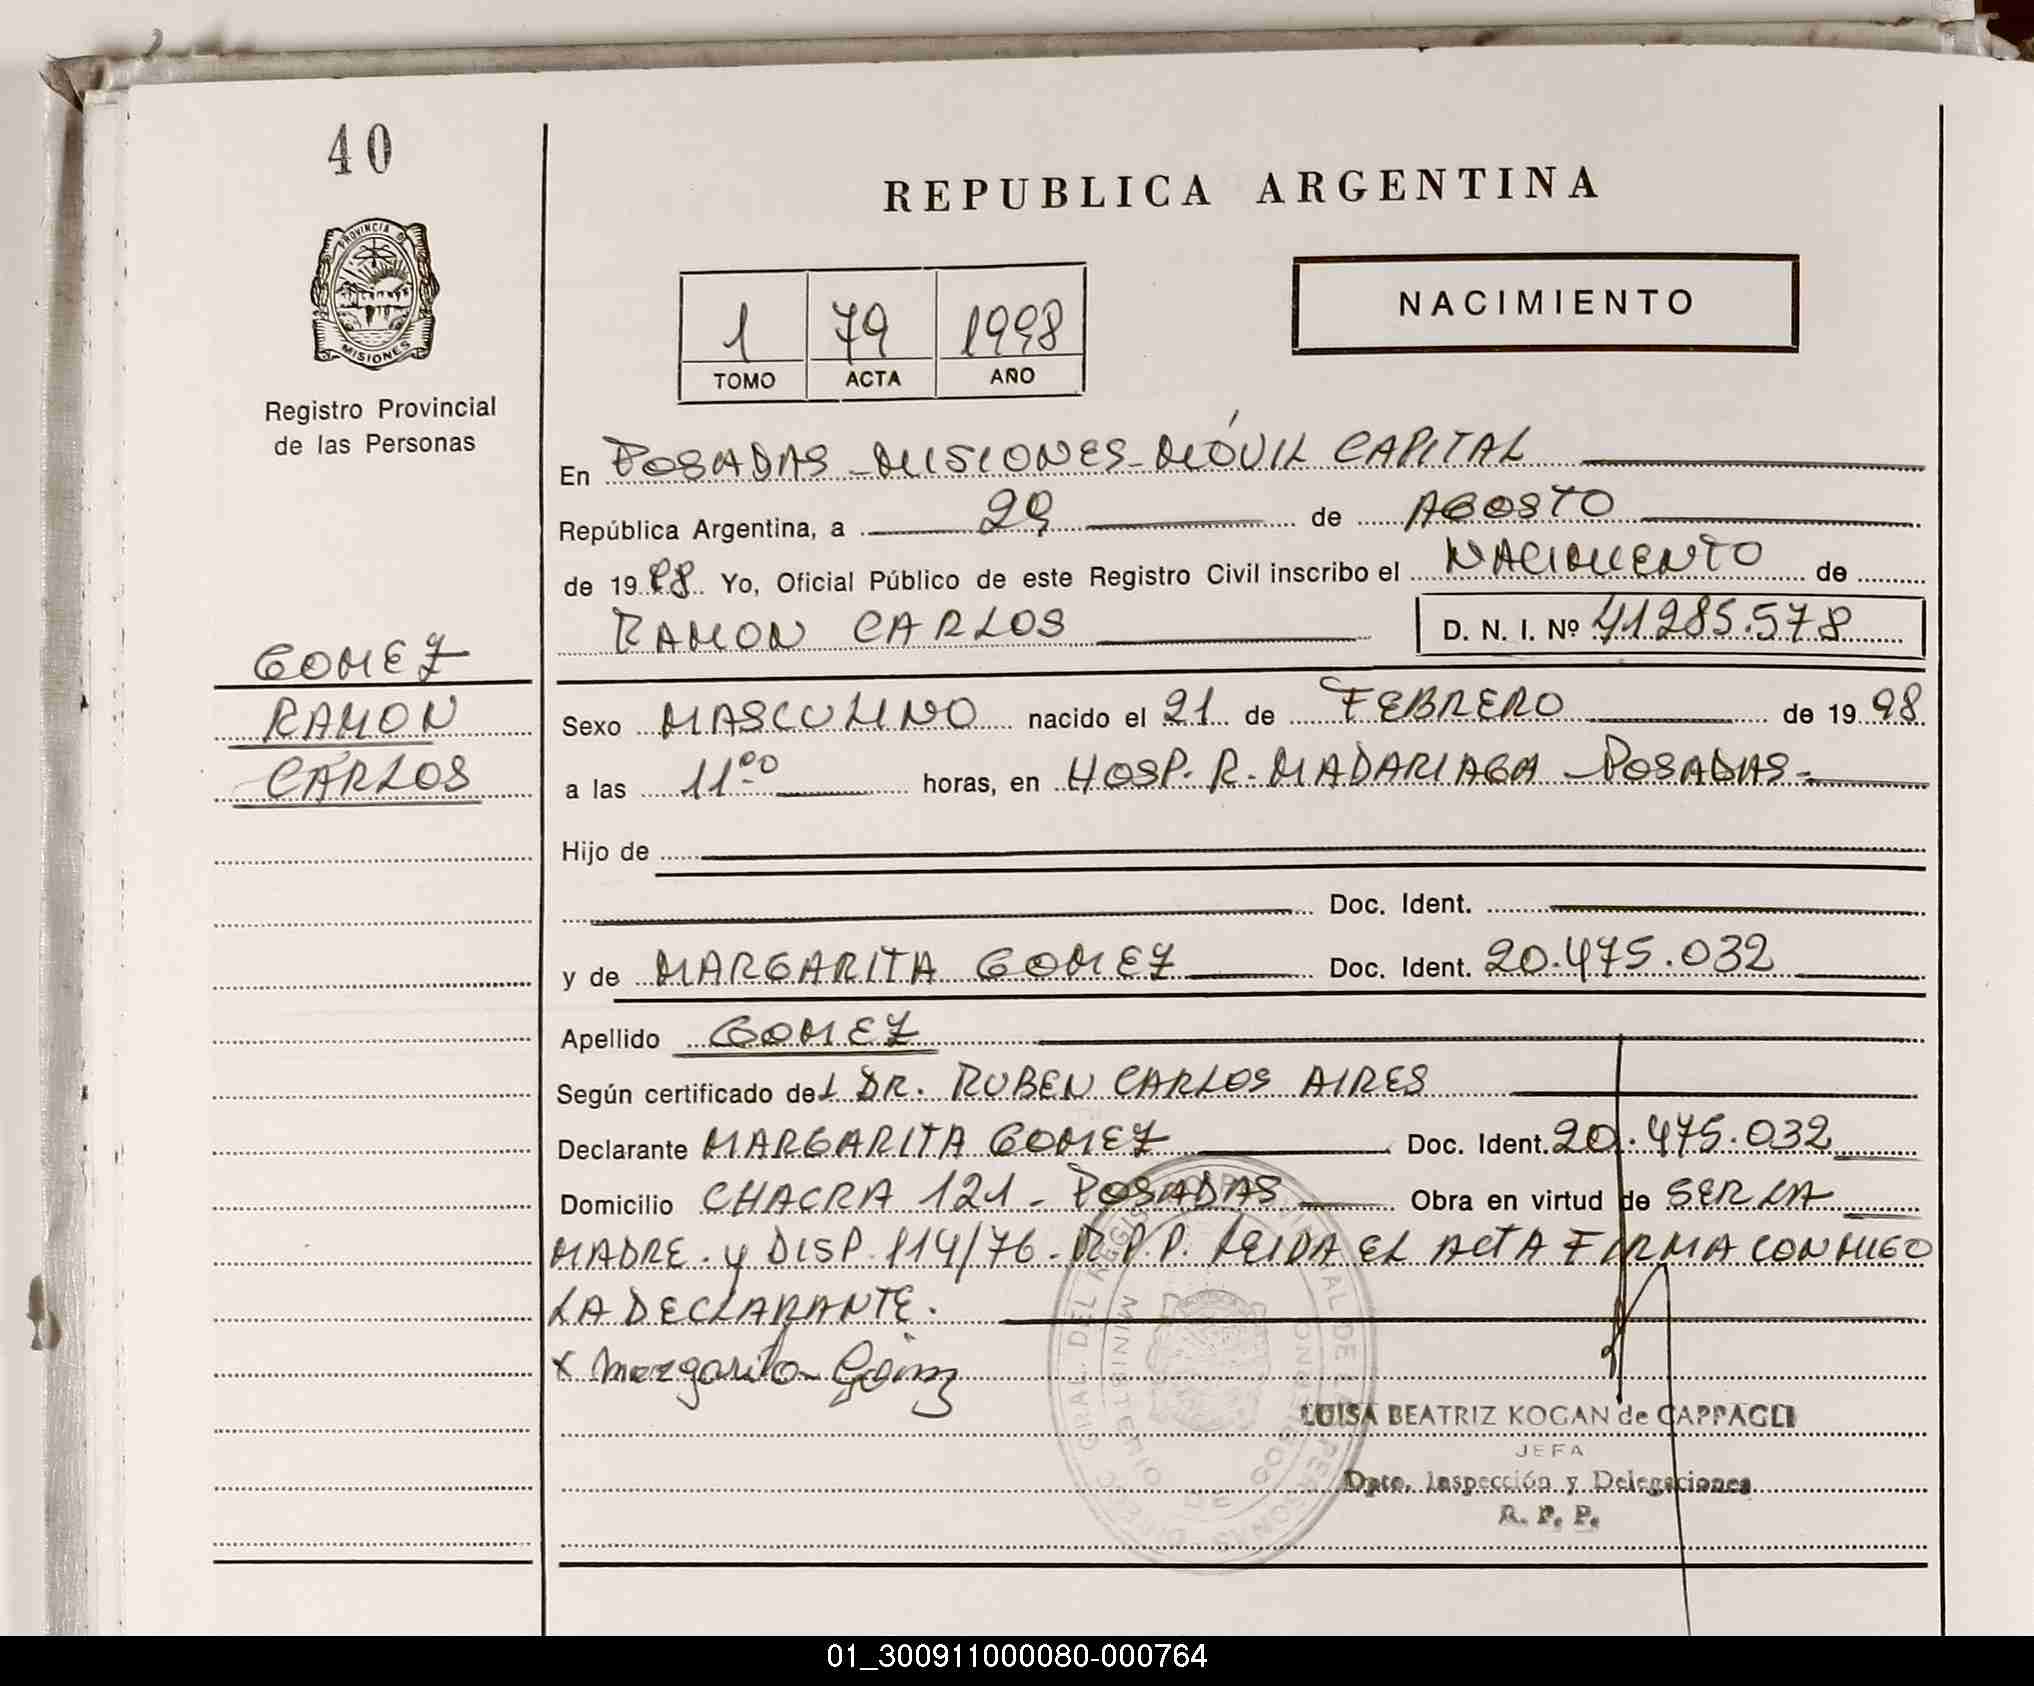 40
PROVINCIA DE
MISIONES
Registro Provincial
de las Personas
REPUBLICA ARGENTINA
1 79 1998
TOMO ACTA AÑO
NACIMIENTO
En POSADAS - MISIONES - MÓVIL CAPITAL
República Argentina, a 29 de AGOSTO
de 1998 Yo, Oficial Público de este Registro Civil inscribo el NACIMIENTO de
RAMON CARLOS D. N. I. Nº 41285.578
GOMEZ
RAMON
CARLOS
Sexo MASCULINO nacido el 21 de FEBRERO de 1998
a las 11.00 horas, en HOSP. R. MADARIAGA - POSADAS -
Hijo de
Doc. Ident.
y de MARGARITA GOMEZ Doc. Ident. 20.475.032
Apellido GOMEZ
Según certificado del DR. RUBEN CARLOS AIRES
Declarante MARGARITA GOMEZ Doc. Ident. 20.475.032
Domicilio CHACRA 121 - POSADAS Obra en virtud de SER LA
MADRE. y DISP. 114/76. R.P.P. LEIDA EL ACTA FIRMA CONMIGO
LA DECLARANTE.
x Margarita Gómez
LUISA BEATRIZ KOGAN de CAPPAGLI
JEFA
Dpto. Inspección y Delegaciones
R. P. P.
01_300911000080-000764